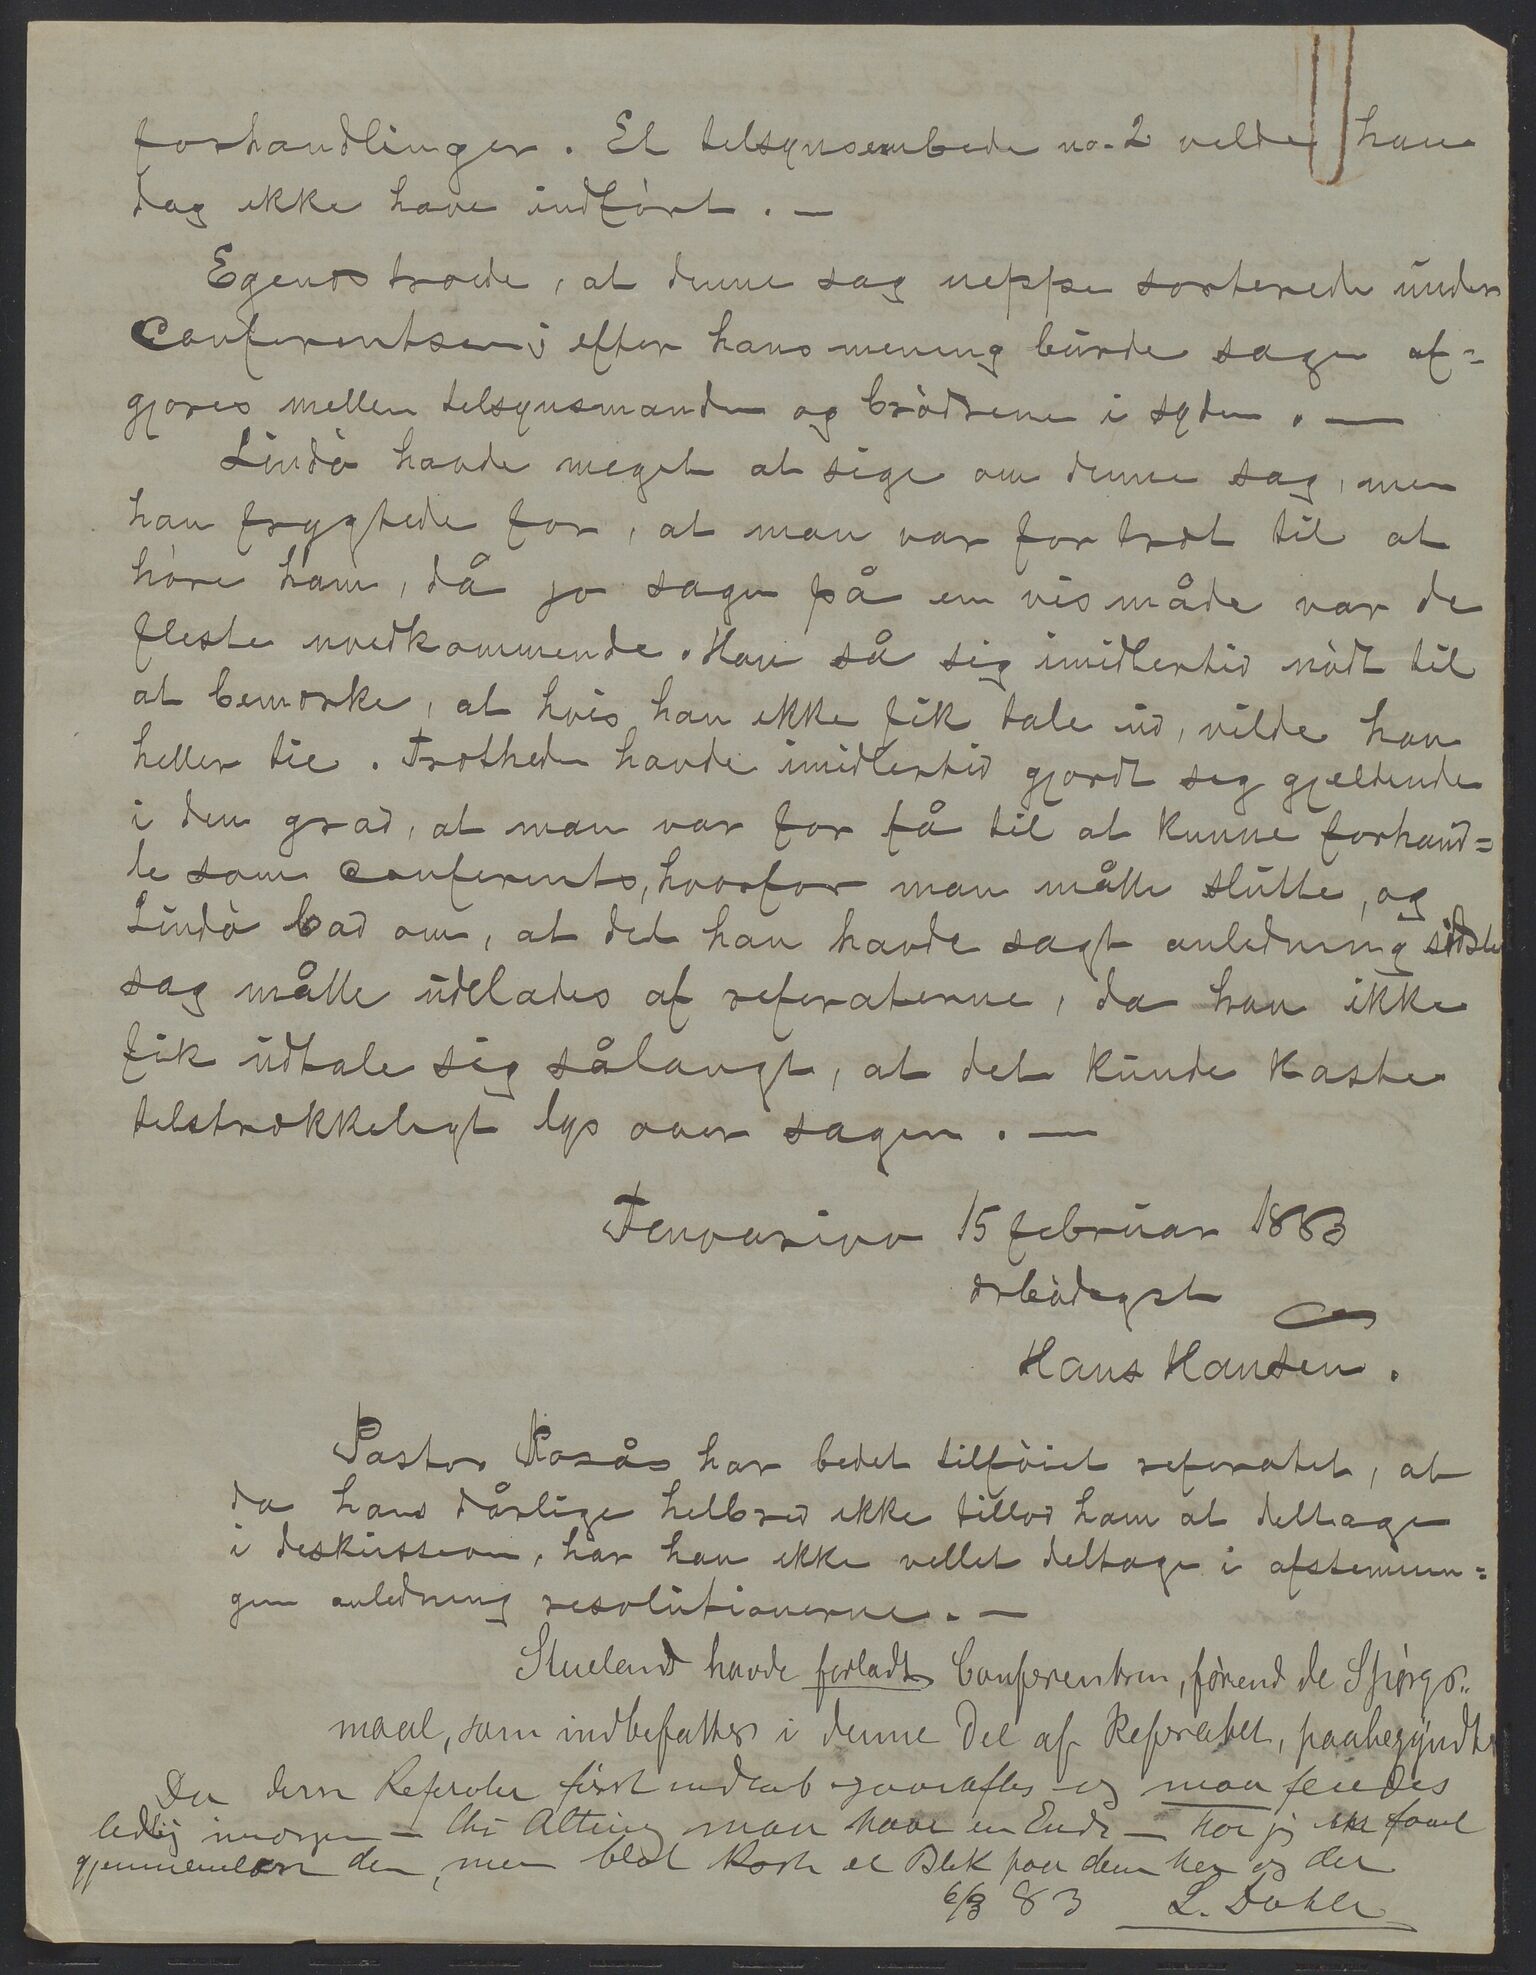 forhandlinger. Et tilsynsembede no. 2 vilde han
dog ikke have indført. —
Egenæs troede, at denne sag neppe sorterede under
Conferentsen; efter hans mening burde sagen af=
gjøres mellem tilsynsmanden og brødrene i syden. —
Lindø havde meget at sige om denne sag, men
han frygtede for, at man var for træt til at
høre ham, då jo sagen på en vis måde var de
fleste uvedkommende. Han så sig imidlertid nødt til
at bemærke, at hvis han ikke fik tale ud, vilde han
heller tie. Trætheden havde imidlertid gjordt seg gjeldende
i den grad, at man var for få til at kunne forhand=
le som Conferents, hvorfor man måtte slutte, og
Lindø bad om, at det han havde sagt anledning sidste
sag måtte udelades af referaterne, da han ikke
fik udtale sig sålangt, at det kunde kaste
tilstrækkeligt lys over sagen. —
Fenoarivo 15 februar 1883
ærbødigst
Hans Hansen.
Pastor Rosås har bedet tilføiet referatet, at
da hans dårlige helbred ikke tillod ham at deltage
i deskussion, har han ikke villet deltage i afstemnin=
gen anledning resolutionerne. —
Stueland havde forladt Conferentsen, førend de Spørgs=
maal, som indbefattes i denne Del af Referatet, paabegyndtes
Da disse Referater først indløb iaaraftes og maa sendes
imorgen — thi Alting maa have en Ende — har jeg ikke faaet
gjennemlæst dem, men blot kaste et Blik paa dem her og der
6/3 83 L. Dahle